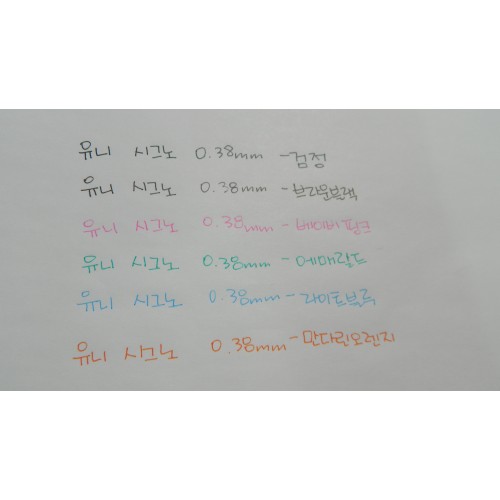 유니 시그노 0.38mm -검정
유니 시그노 0.38mm -브라운블랙
유니 시그노 0.38mm -베이비핑크
유니 시그노 0.38mm -에메랄드
유니 시그노 0.38mm -라이트블루
유니 시그노 0.38mm -만다린오렌지